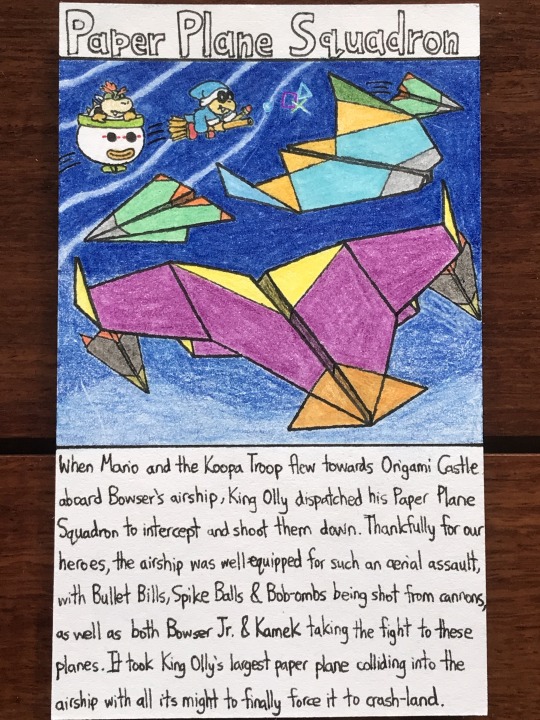 Paper Plane Squadron
When Mario and the Koopa Troop flew towards Origami Castle
aboard Bowser's airship, King Olly dispatched his Paper Plane
Squadron to intercept and shoot them down. Thankfully for our
heroes, the airship was well-equipped for such an aerial assault,
with Bullet Bills, Spike Balls & Bob-ombs being shot from cannons,
as well as both Bowser Jr. & Kamek taking the fight to these
planes. It took King Olly's largest paper plane colliding into the
airship with all its might to finally force it to crash-land.